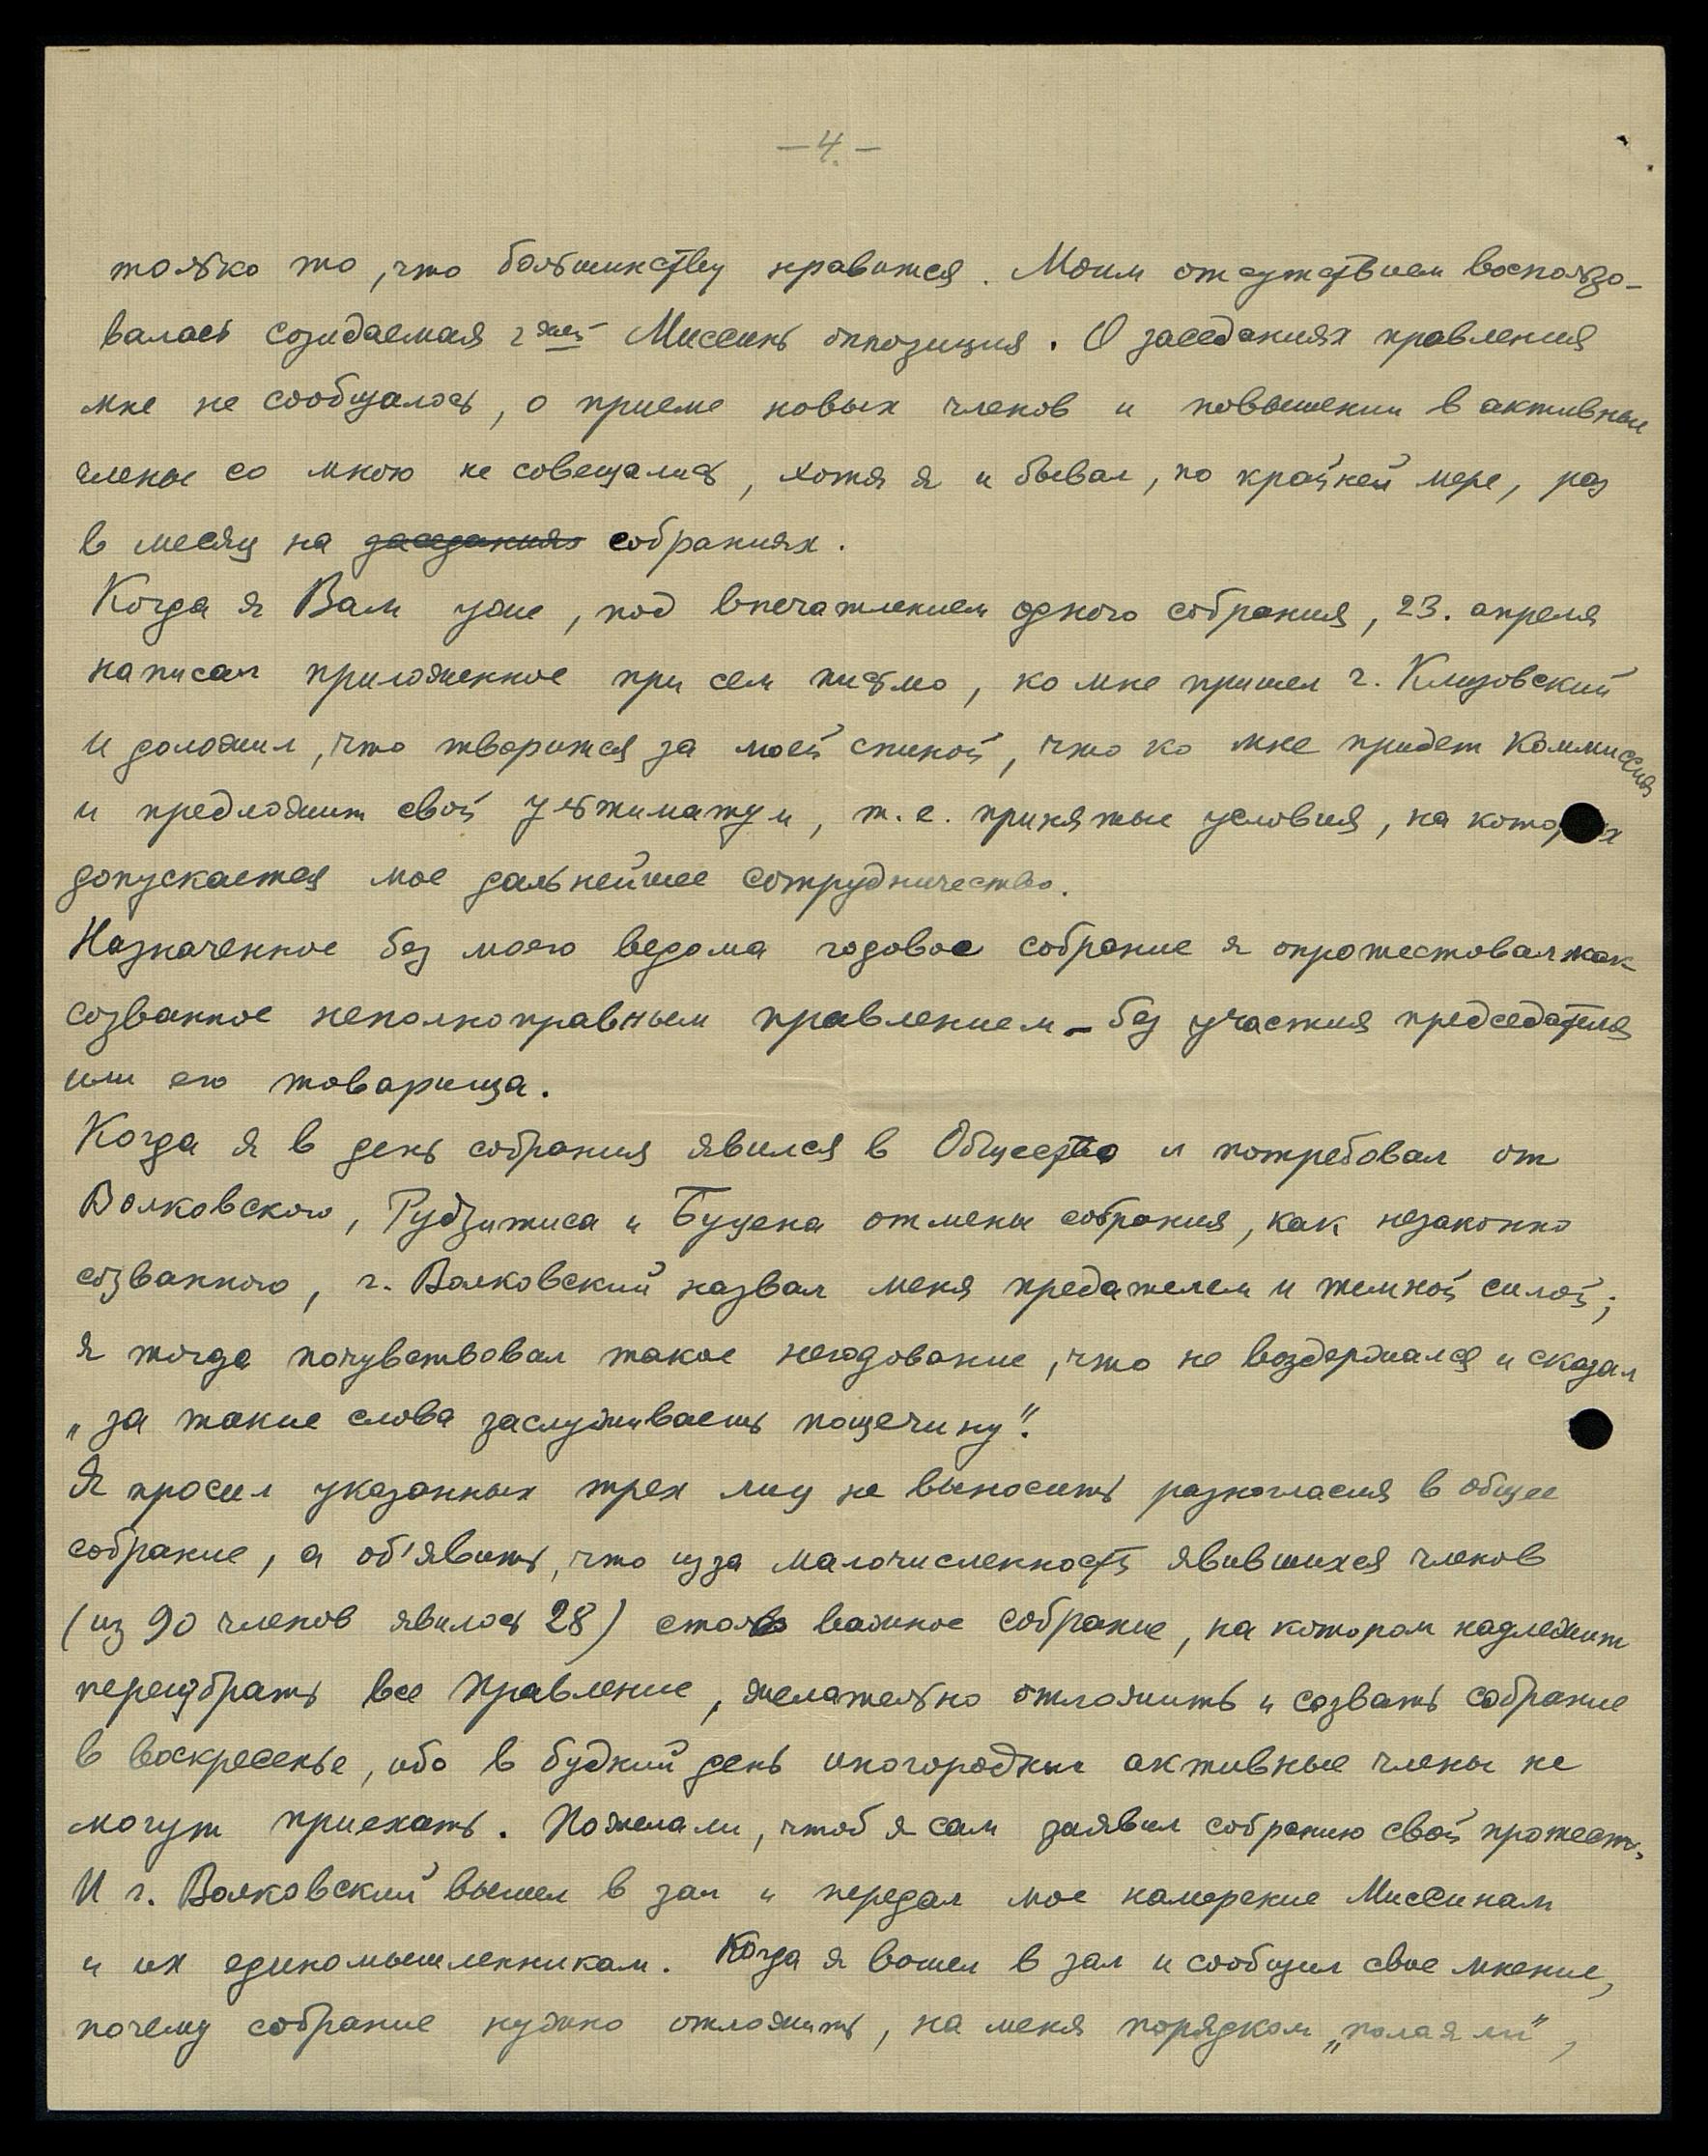 —4.—
только то, что большинству нравится. Моим отсутствием воспользо-
валась созидаемая г-жей Миссинь оппозиция. О заседаниях правления
мне не сообщалось, о приеме новых членов и повышении в активные
члены со мною не совещались, хотя я и бывал, по крайней мере, раз
в месяц на заседаниях собраниях.
Когда я Вам уже, под впечатлением одного собрания, 23. апреля
написал приложенное при сем письмо, ко мне пришел г. Клизовский
и доложил, что творится за моей спиной, что ко мне придет Коммиссия
и предложит свой ультиматум, т.е. принятые условия, на которых
допускается мое дальнейшее сотрудничество.
Назначенное без моего ведома годовое собрание я опротестовал как
созванное неполноправным правлением – без участия председателя
или его товарища.
Когда я в день собрания явился в Общество и потребовал от
Волковского, Рудзитиса и Буцена отмены собрания, как незаконно
созванного, г. Волковский назвал меня предателем и темной силой;
я тогда почувствовал такое негодование, что не воздержался и сказал
„за такие слова заслуживаешь пощечину".
Я просил указанных трех лиц не выносить разногласия в общее
собрание, а об'явить, что из за малочисленность явившихся членов
(из 90 членов явилось 28) столь важное собрание, на котором надлежит
переизбрать все Правление, желательно отложить и созвать собрание
в воскресенье, ибо в будний день иногородные активные члены не
могут приехать. Пожелали, чтоб я сам заявил собранию свой протест.
И г. Волковский вышел в зал и передал мое намерение Миссинам
и их единомышленникам. Когда я вошел в зал и сообщил свое мнение,
почему собрание нужно отложить, на меня порядком „полаяли",